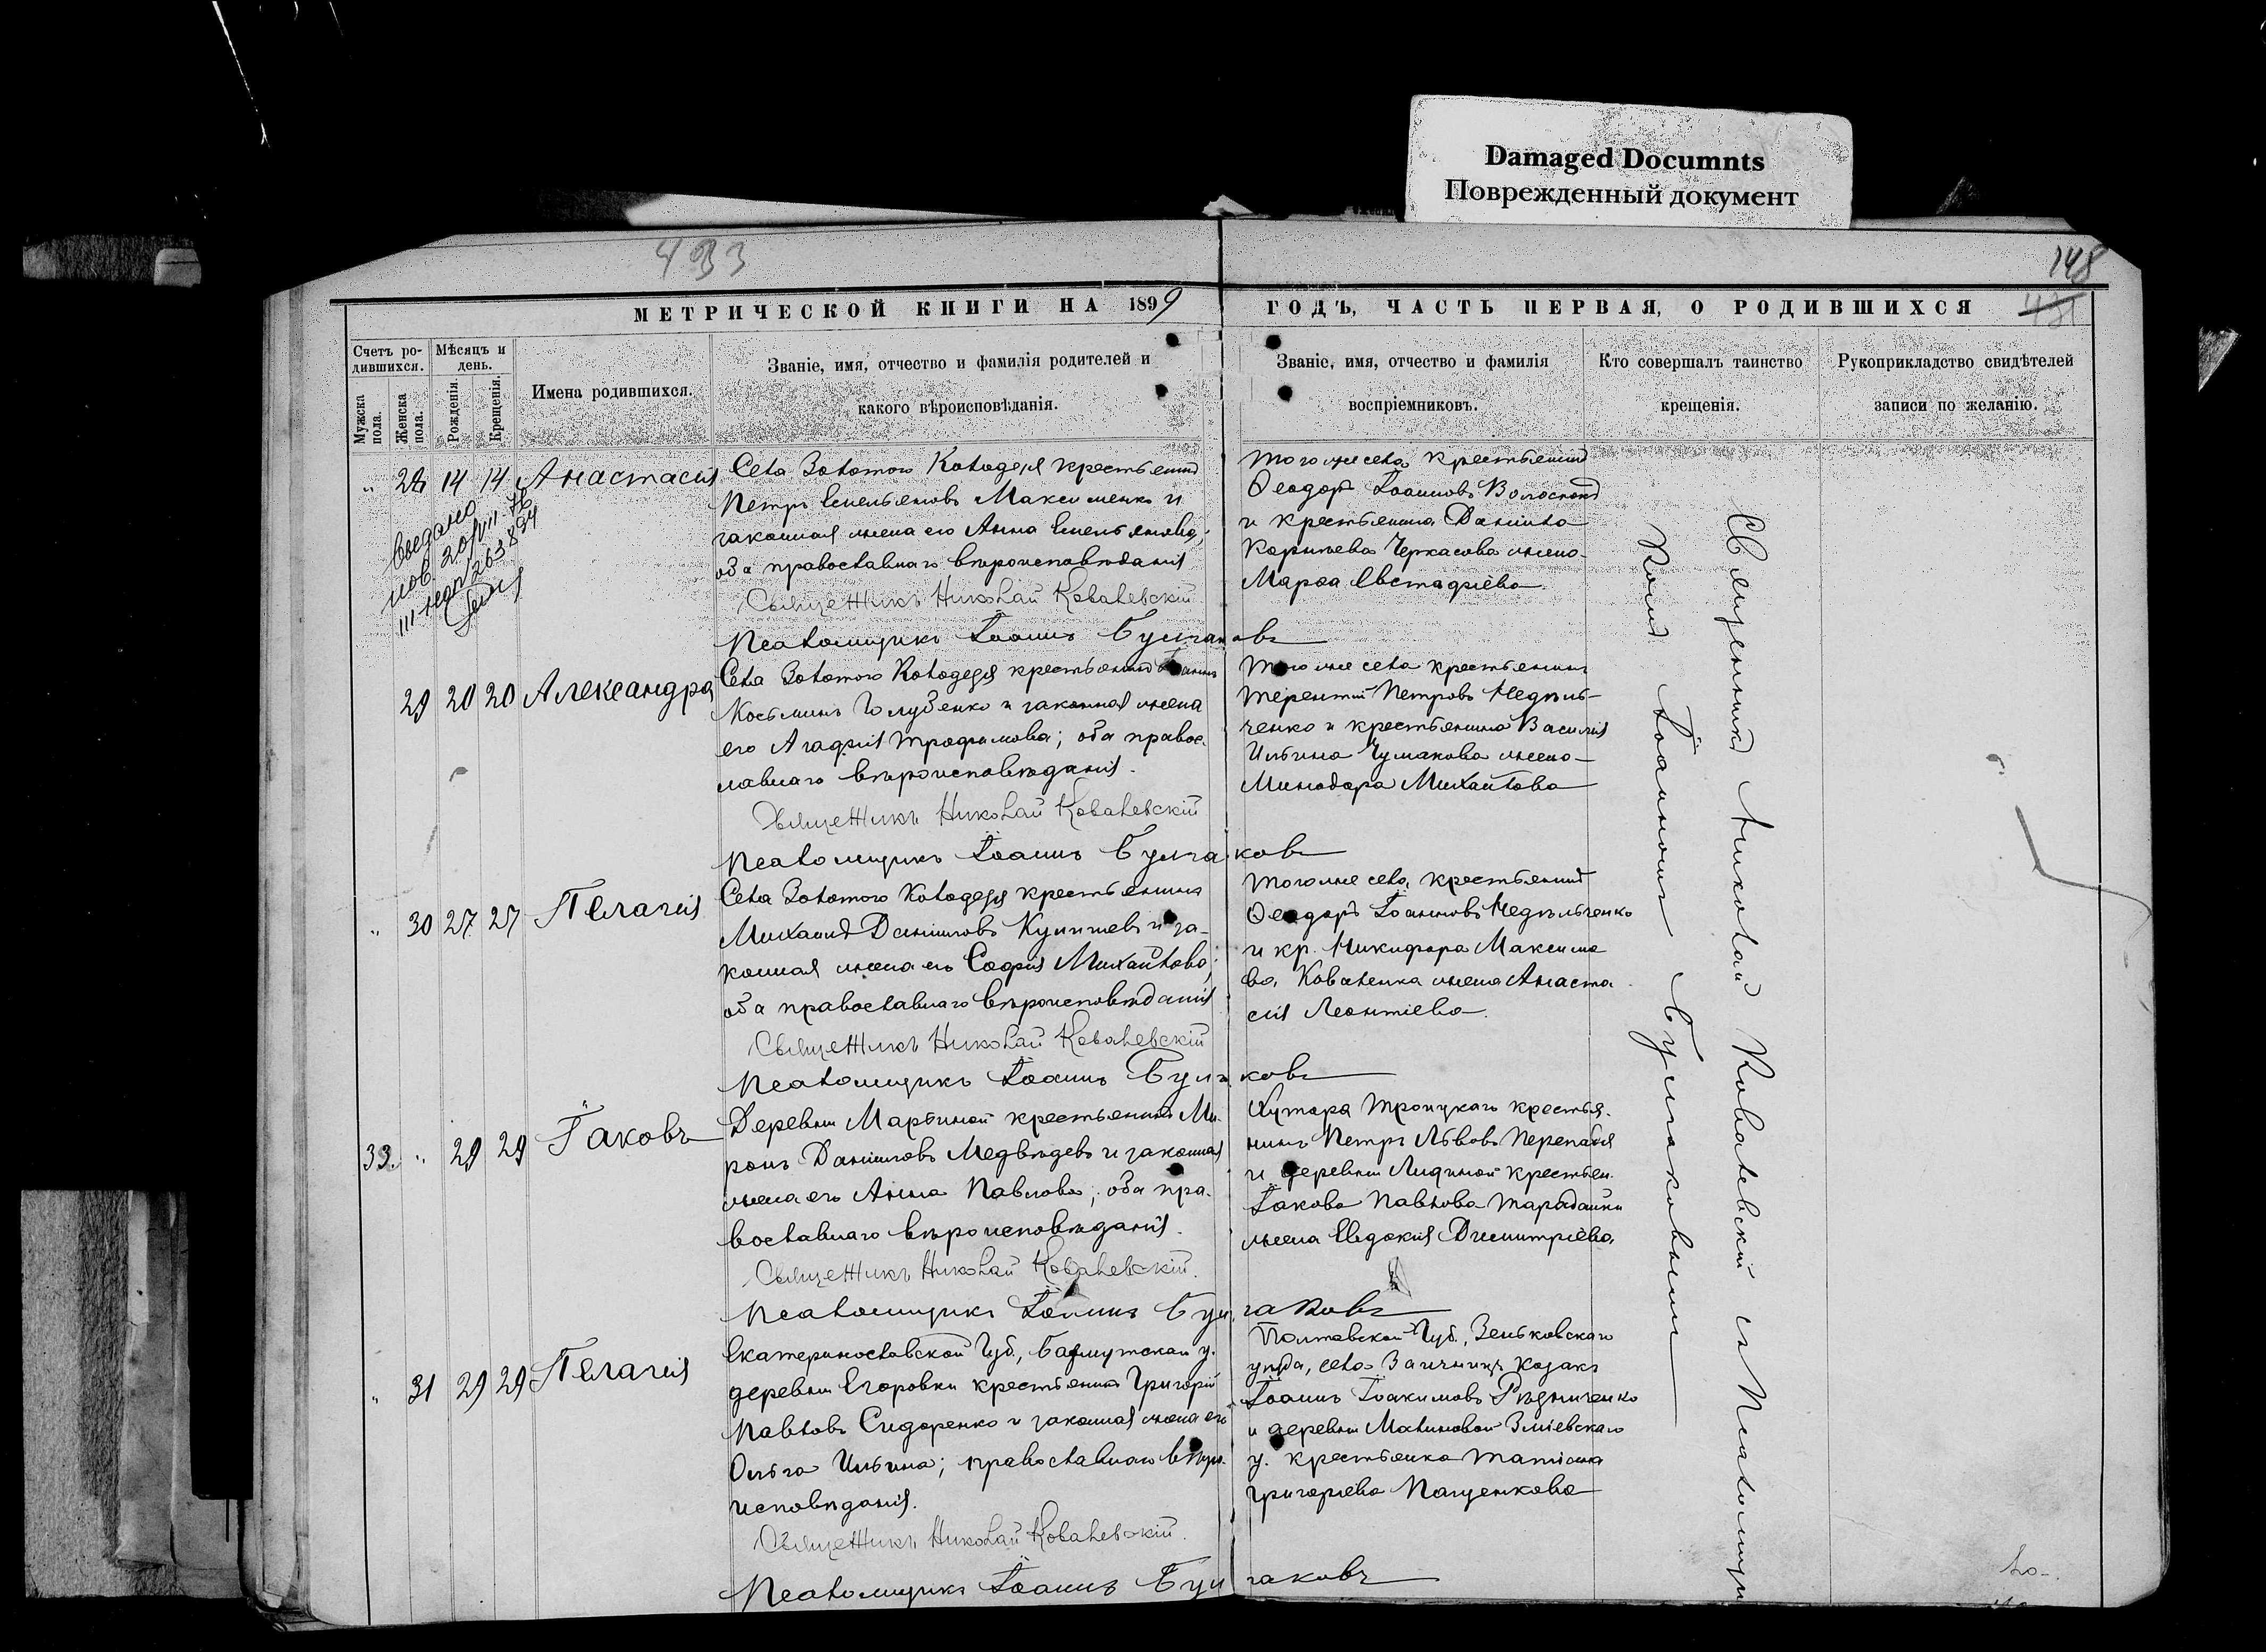 Damaged Documnts
Поврежденный документ
433
148
431
МЕТРИЧЕСКОЙ КНИГИ НА 1899
ГОДЪ, ЧАСТЬ ПЕРВАЯ, О РОДИВШИХСЯ
Счетъ ро-
дившихся.
Мѣсяцъ и
день.
Мужска
пола.
Женска
пола.
Рожденія.
Крещенія.
Имена родившихся.
Званіе, имя, отчество и фамилія родителей и
какого вѣроисповѣданія.
Званіе, имя, отчество и фамилія
воспріемниковъ.
Кто совершалъ таинство
крещенія.
Рукоприкладство свидѣтелей
записи по желанію.
" 28 14 14 Анастасія
Села Золотого Колодезя крестьянинъ
Петръ Емельяновъ Максименко и
законная жена его Анна Емельянова;
оба православнаго вѣроисповѣданія
Священникъ Николай Ковалевскій
Псаломщикъ Іоаннъ Булгаковъ
того же села крестьянинъ
Ѳеодоръ Іоанновъ
и крестьянина Даніила
Корнѣева Черкасова жена
Марѳа Евстафіева
29 20 20 Александра
Села Золотого Колодезя крестьянинъ
Косьминъ Голубенко и законная жена
его Агафія Трофимова; оба правос-
лавнаго вѣроисповѣданія.
Священникъ Николай Ковалевскій
Псаломщикъ Іоаннъ Булгаковъ
Того же села крестьянинъ
Терентій Петровъ Недѣль-
ченко и крестьянина Василія
Ильина Чумакова жена
Минодора Михайлова
" 30 27 27 Пелагія
Села Золотого Колодезя крестьянинъ
Михаилъ Данииловъ и за-
конная жена его Софія Михайлова;
оба православнаго вѣроисповѣданія
Священникъ Николай Ковалевскій
Псаломщикъ Іоаннъ Булгаковъ
того же села, крестьянинъ
Ѳеодоръ Іоанновъ Недѣльченко
и кр. Никифора Максимо
ва, Коваленка жена Анаста
сія Леонтіева.
33. " 29 29 Іаковъ
Деревни Марьиной крестьянинъ Ми-
ронъ Данииловъ Медвѣдевъ и законная
жена его Анна Павлова; оба пра-
вославнаго вѣроисповѣданія.
Священникъ Николай Ковалевскій.
Псаломщикъ Іоаннъ Булгаковъ
Хутора Троицкаго крестья-
нинъ Петръ Львовъ
и деревни Лидиной крестьян.
Іакова Павлова
жена Евдокія Димитріева,
" 31 29 29 Пелагія
Екатеринославской Губ., Бахмутскаго у.
деревни Егоровки крестьянинъ Григорій
Павловъ Сидоренко и законная жена его
Ольга Ильина; православнаго вѣро-
исповѣданія.
Священникъ Николай Ковалевскій.
Псаломщикъ Іоаннъ Булгаковъ
Полтавской Губ., Зеньковскаго
уѣзда, села козакъ
Іоаннъ Іоакимовъ
и деревни Малиновой Зміевскаго
у. крестьянка
Григоріева Пащенкова
Священникъ Николай Ковалевскій съ Псаломщи
комъ Іоанномъ Булгаковымъ